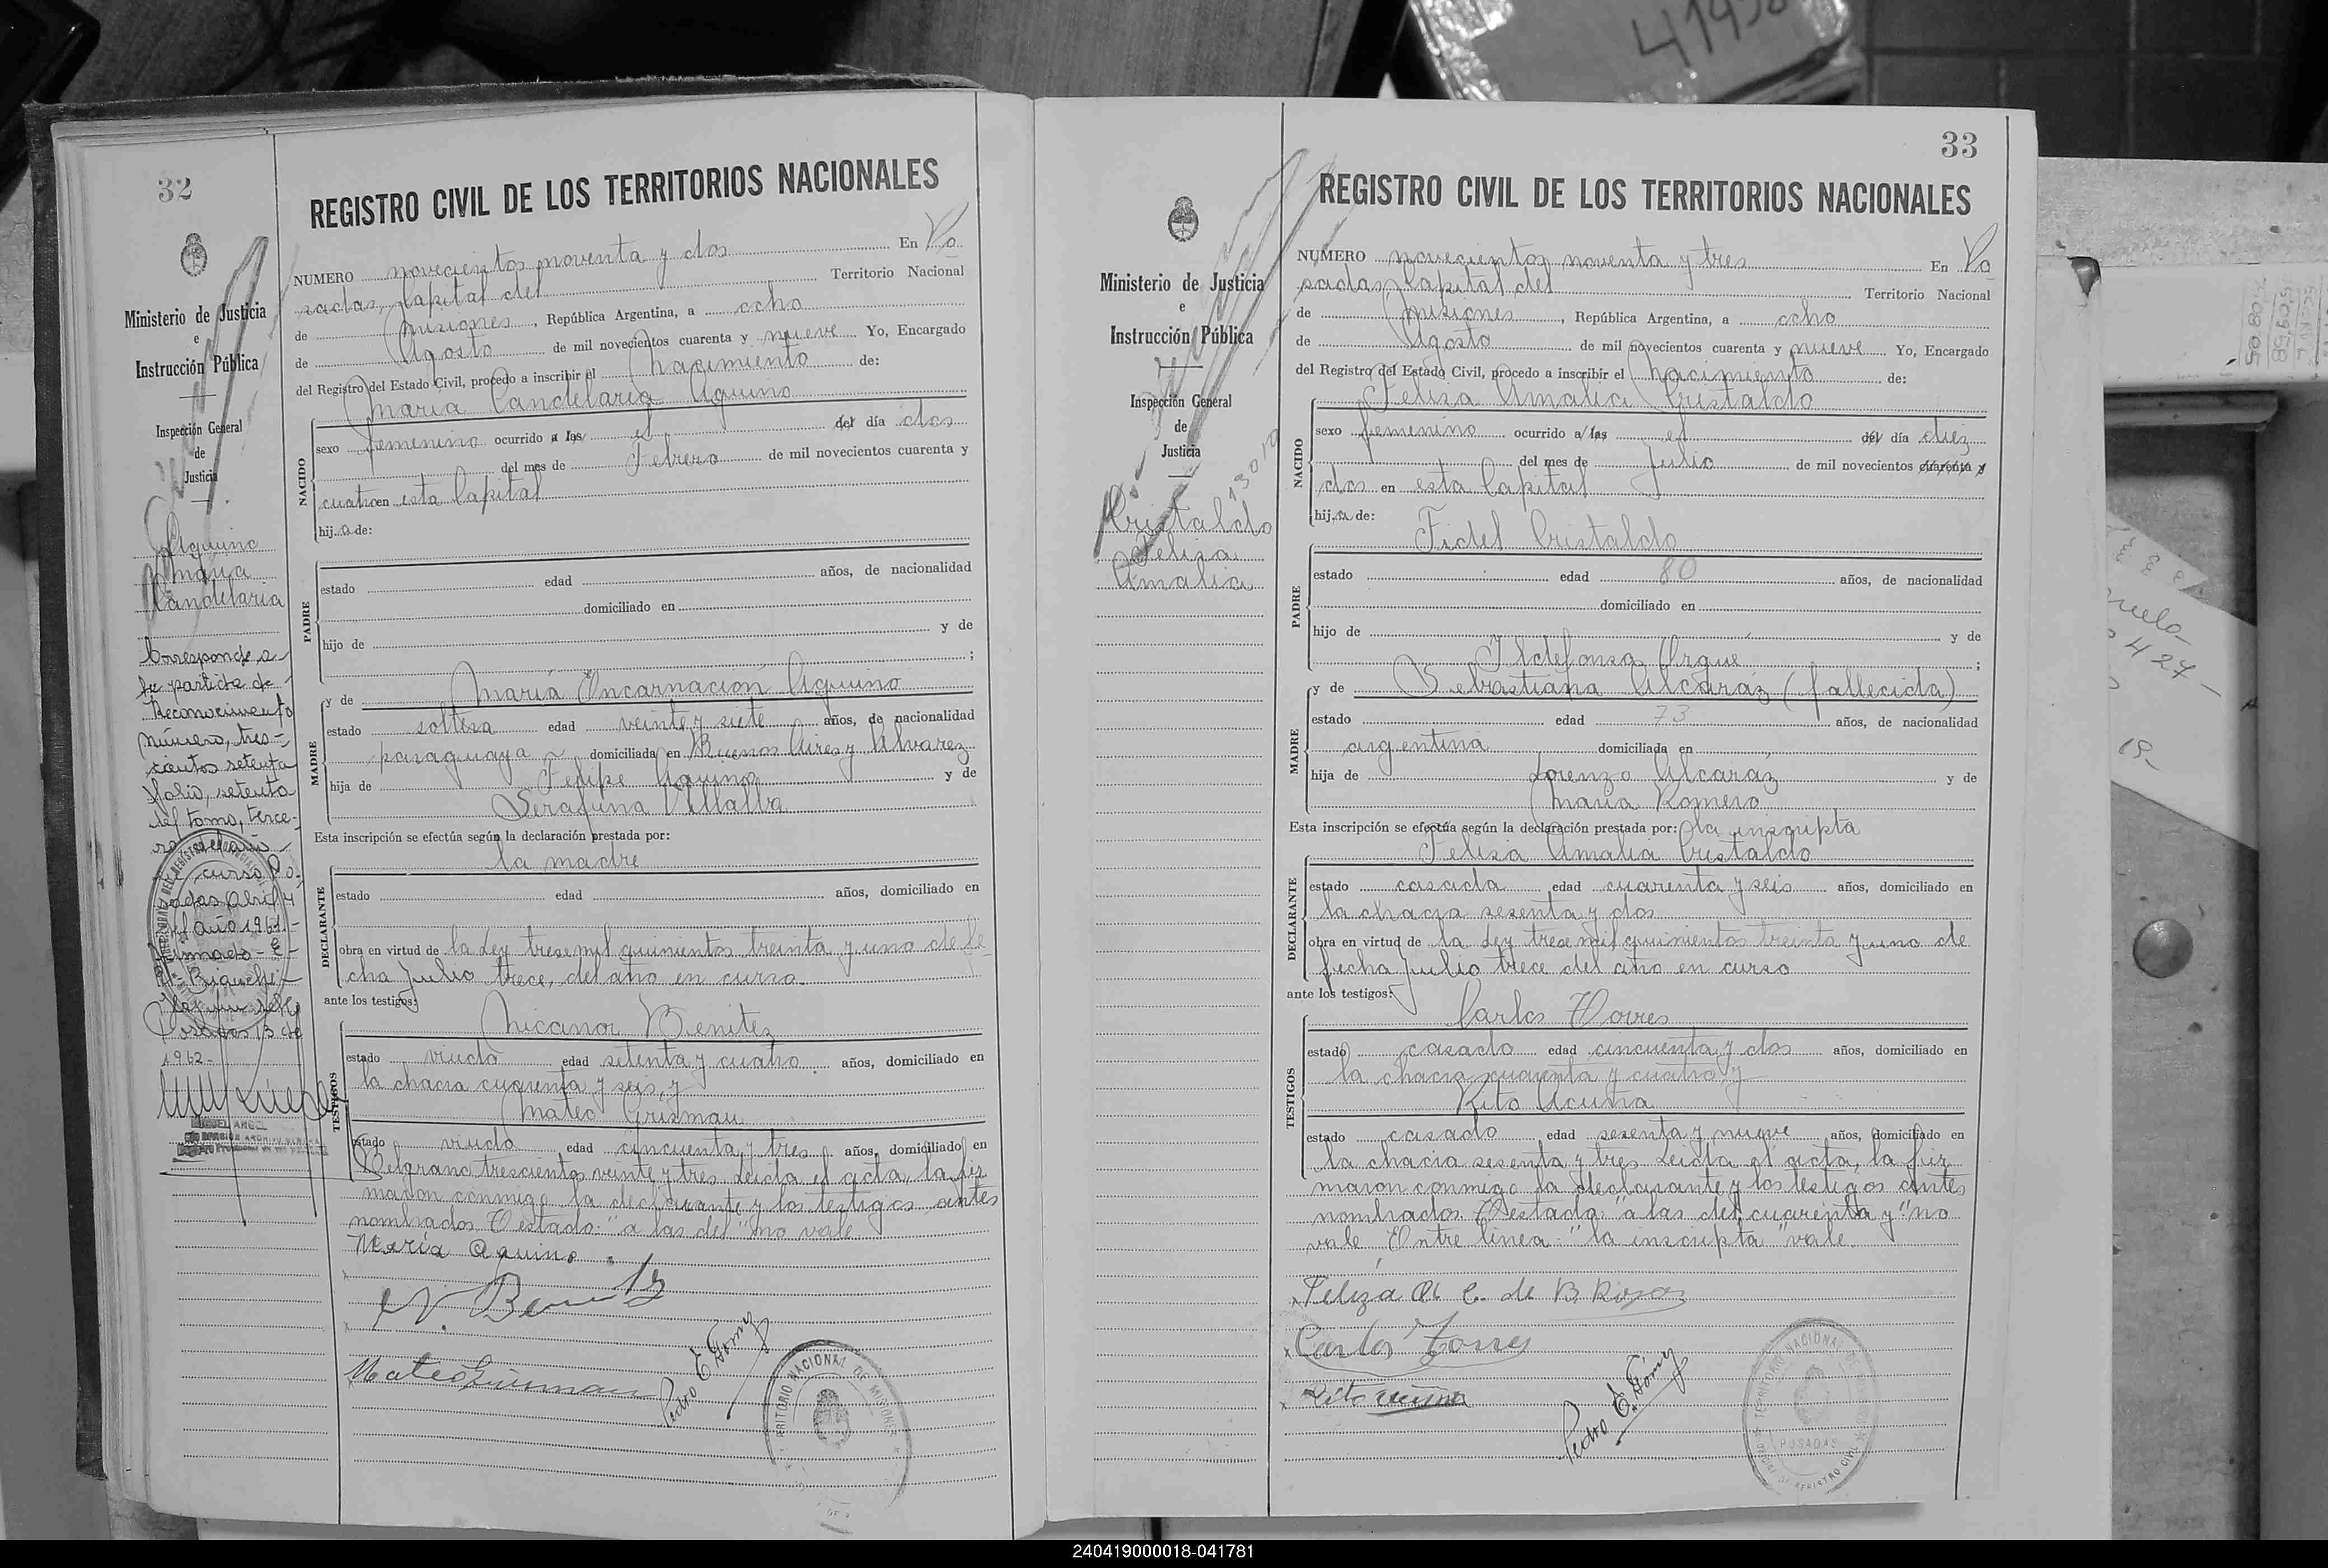 41498
32
REGISTRO CIVIL DE LOS TERRITORIOS NACIONALES
Ministerio de Justicia
e
Instrucción Pública
Inspección General
de
Justicia
Aquino
María
Candelaria
Corresponde a
la partida de
Reconocimiento
número, tres-
cientos setenta
folio, setenta
del tomo, terce-
ro del año
curso Po-
sadas Abril 4
del año 1961.-
Firmado - E -
Posadas 13 de
1962.-
MIGUEL ANGEL
NUMERO novecientos noventa y dos En Po
sadas, Capital del Territorio Nacional
de Misiones, República Argentina, a ocho
de Agosto de mil novecientos cuarenta y nueve Yo, Encargado
del Registro del Estado Civil, procedo a inscribir el Nacimiento de:
María Candelaria Aquino
NACIDO
sexo femenino ocurrido a las el del día dos
del mes de Febrero de mil novecientos cuarenta y
cuatro en esta Capital
hija de:
PADRE
estado edad años, de nacionalidad
domiciliado en
hijo de y de
;
y de María Encarnación Aquino
MADRE
estado soltera edad veinte y siete años, de nacionalidad
paraguaya domiciliada en Buenos Aires y Alvarez
hija de Felipe Aquino y de
Serafina Villalba
Esta inscripción se efectúa según la declaración prestada por:
la madre
DECLARANTE
estado edad años, domiciliado en
obra en virtud de la Ley trese mil quinientos treinta y uno de fe
cha Julio trece, del año en curso.
ante los testigos:
Nicanor Benitez
TESTIGOS
estado viudo edad setenta y cuatro años, domiciliado en
la chacra cuarenta y seis, y
Mateo Grismau
estado viudo edad cincuenta y tres años, domiciliado en
Belgrano trescientos veinte y tres Leida el acta, la fir
maron conmigo la declarante y los testigos antes
nombrados Testado: "a las del" no vale.
María Aquino
N. Benitez
Mateo Grismau
Pedro E. Gómez
TERRITORIO NACIONAL DE MISIONES
33
REGISTRO CIVIL DE LOS TERRITORIOS NACIONALES
Ministerio de Justicia
e
Instrucción Pública
Inspección General
de
Justicia
13010
Cristaldo
Feliza
Amalia
NUMERO novecientos noventa y tres En Po
sadas, Capital del Territorio Nacional
de Misiones, República Argentina, a ocho
de Agosto de mil novecientos cuarenta y nueve Yo, Encargado
del Registro del Estado Civil, procedo a inscribir el Nacimiento de:
Feliza Amalia Cristaldo
NACIDO
sexo femenino ocurrido a las el del día diez
del mes de Julio de mil novecientos cuarenta y
dos en esta Capital
hija de:
Fidel Cristaldo
PADRE
estado edad 80 años, de nacionalidad
domiciliado en
hijo de y de
Ildefonsa Orque ;
y de Sebastiana Alcaráz (fallecida)
MADRE
estado edad 73 años, de nacionalidad
argentina domiciliada en
hija de Lorenzo Alcaráz y de
María Romero
Esta inscripción se efectúa según la declaración prestada por: la inscripta
Feliza Amalia Cristaldo
DECLARANTE
estado casada edad cuarenta y seis años, domiciliado en
la chacra sesenta y dos
obra en virtud de la Ley trese mil quinientos treinta y uno de
fecha Julio trece del año en curso
ante los testigos:
Carlos Torres
TESTIGOS
estado casado edad cincuenta y dos años, domiciliado en
la chacra cuarenta y cuatro y
Rito Acuña
estado casado edad sesenta y nueve años, domiciliado en
la chacra sesenta y tres Leida el acta, la fir
maron conmigo la declarante y los testigos antes
nombrados Testado: "a las del cuarenta y" no
vale Entre línea: "la inscripta" vale.
Feliza A. C. de B. Rojas
Carlos Torres
Rito Acuña
Pedro E. Gómez
TERRITORIO NACIONAL DE
POSADAS
REGISTRO CIVIL
240419000018-041781